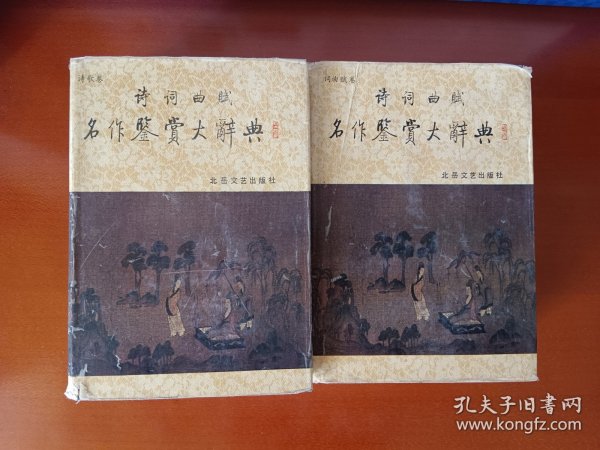 诗歌卷
诗词曲赋
名作鉴赏大辞典
北岳文艺出版社
词曲赋卷
诗词曲赋
名作鉴赏大辞典
北岳文艺出版社
孔夫子旧书网
www.kongfz.com